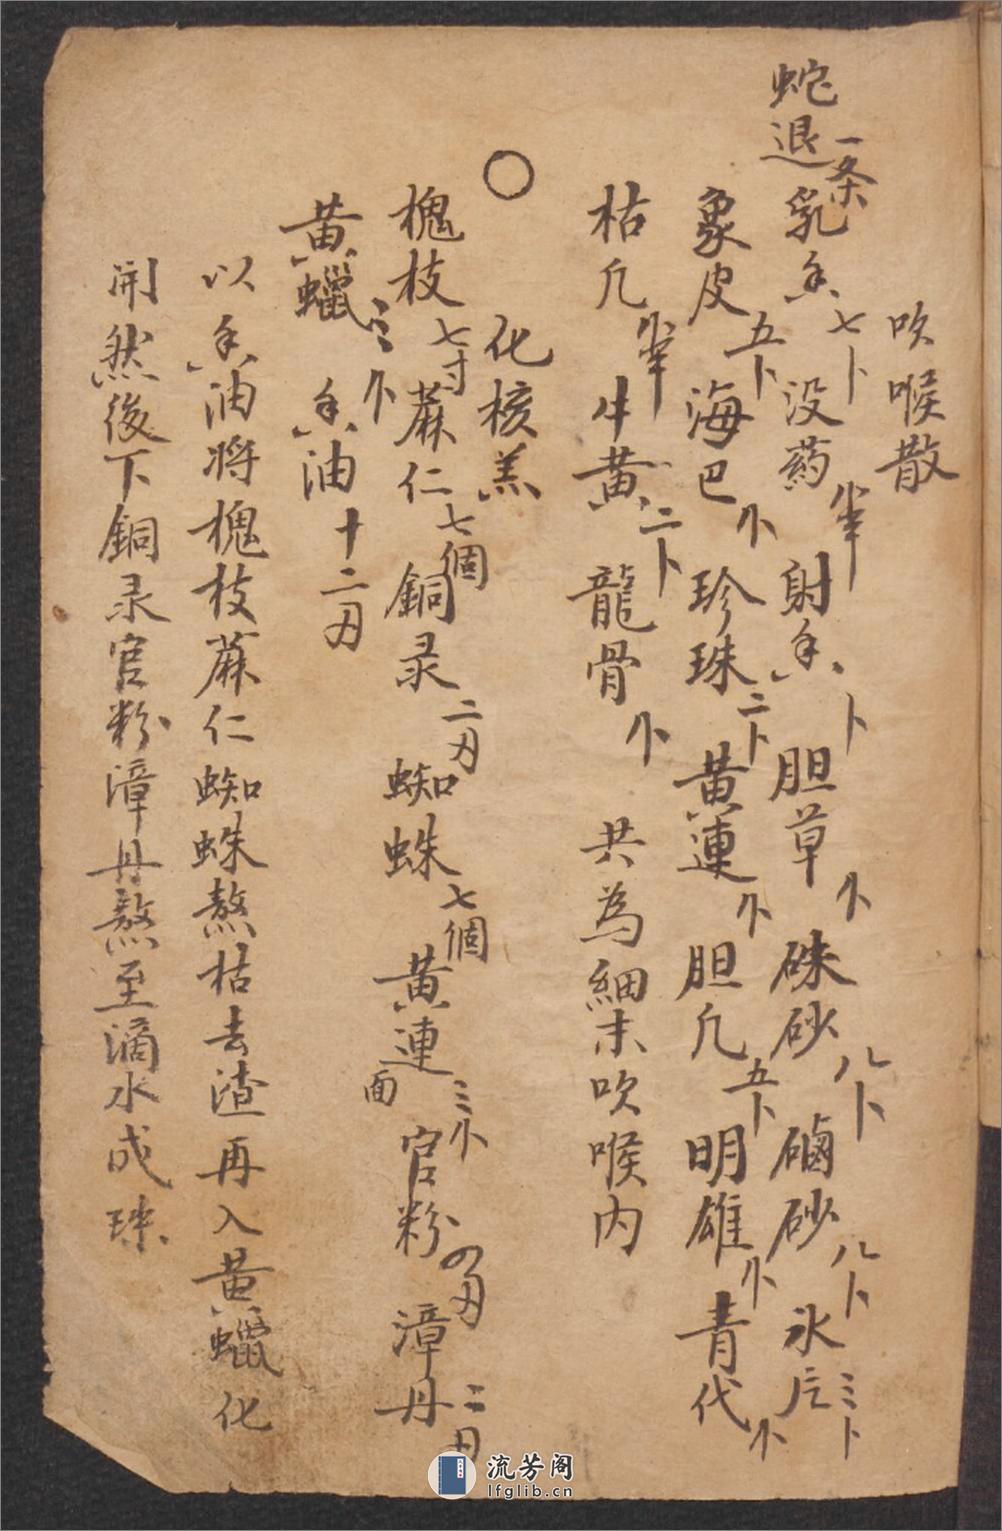 吹喉散
蛇退一条
乳香七卜 没药小半 射香卜 胆草小 硃砂八卜 磠砂八卜 氷片三卜
象皮五卜 海巴小 珍珠二卜 黄連小 胆凡五卜 明雄小 青代小
枯凡小半 牛黄二卜 龍骨小 共為細末吹喉内
○ 化核羔
槐枝七寸 蔴仁七個 銅录二刃 蜘蛛七個 黄連面三小 官粉四刃 漳丹二刃
黄蠟三小 香油十二刃
以香油将槐枝蔴仁蜘蛛熬枯去渣再入黄蠟化
開然後下銅录官粉漳丹熬至滴水成珠
流芳阁
lfglib.cn